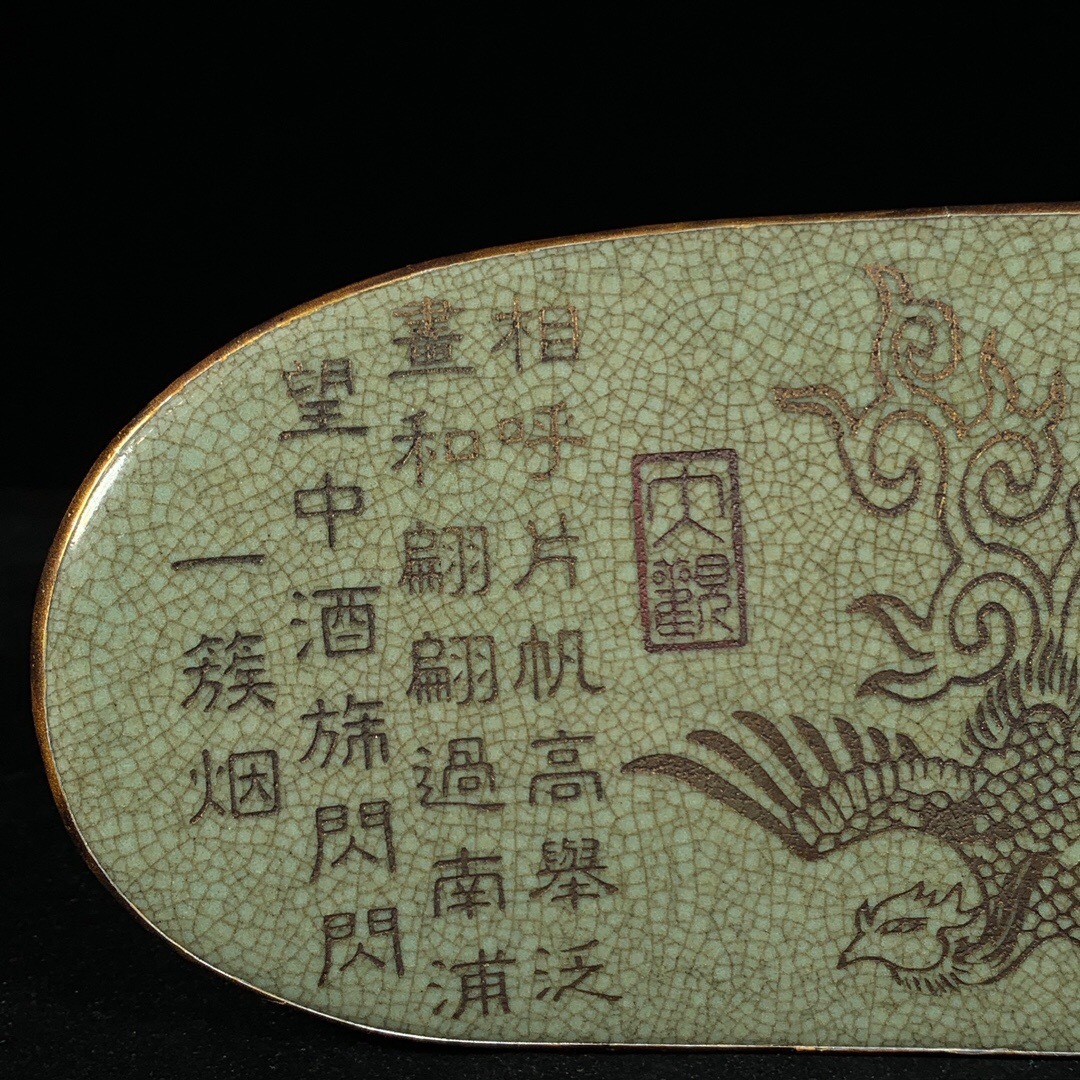 大觀
相呼片帆高舉泛
畫和翩翩過南浦
望中酒旆閃閃
一簇烟